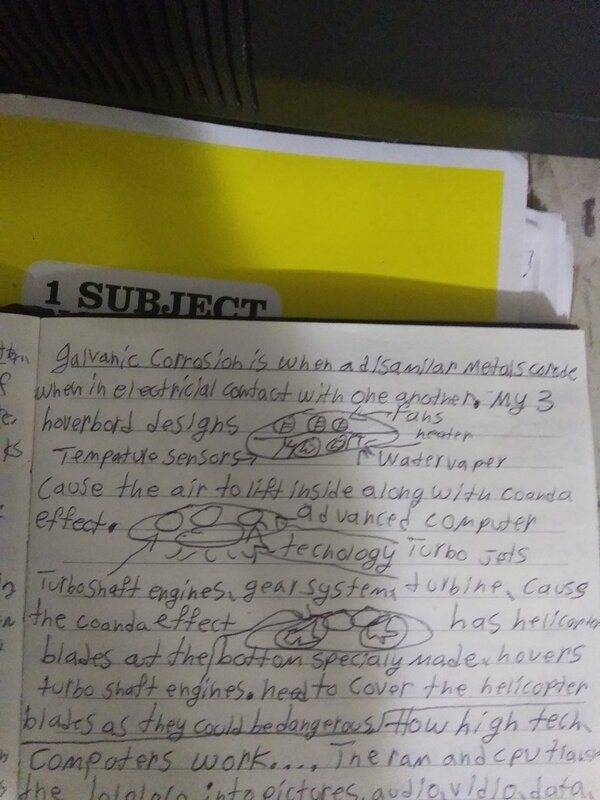 1 SUBJECT
Galvanic Corrosion is when a disamilar metals corode
when in electricial contact with one another. My 3
hoverbord designs
Fans
heater
Tempature sensors
Water vaper
Cause the air to lift inside along with coanda
effect.
advanced computer
techology Turbo Jets
Turboshaft engines, gear system, turbine, Cause
the coanda effect
has helicopter
blades at the bottom specialy made, hovers
turbo shaft engines. head to cover the helicopter
blades as they could be dangerous. How high tech
Computers work.... The ram and cpu
the 1010101010 into pictures, audio, vidio, data,